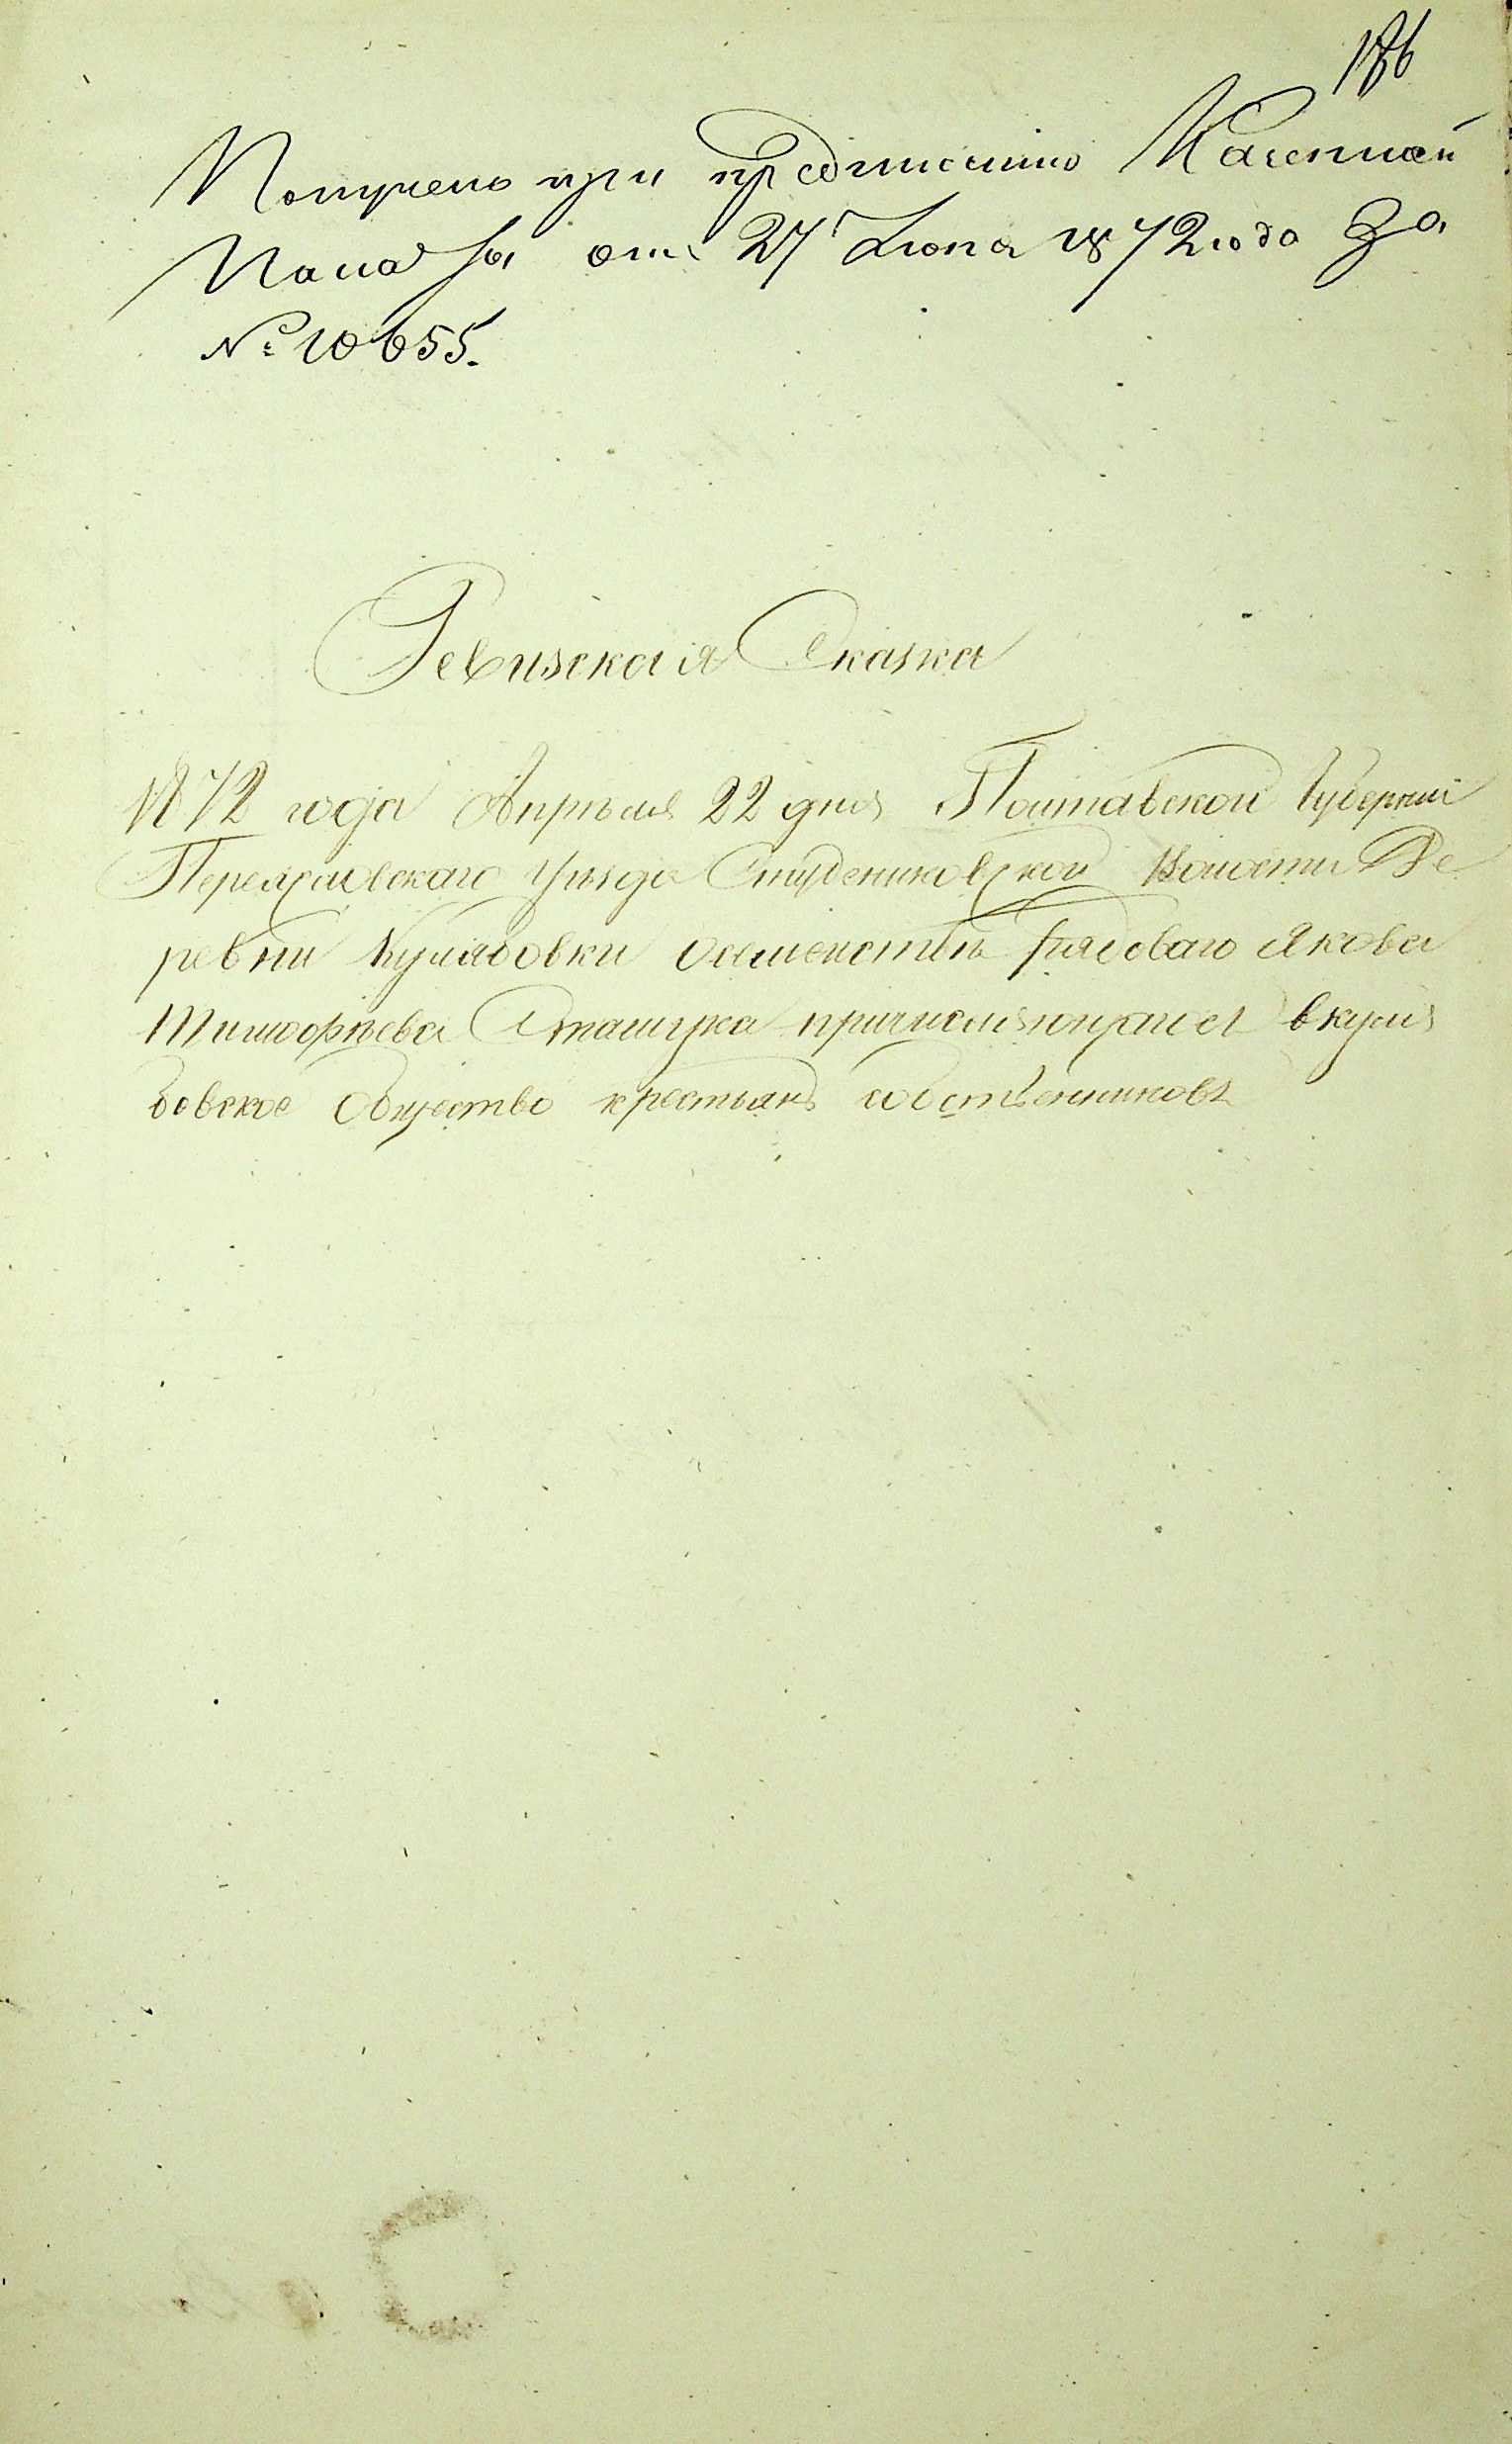 186
Получено при предписанию Казенной
Палаты отъ 27 Июня 1872 года За
№ 10655.
Ревизская Сказка
1872 года Апреля 22 дня Полтавской Губерніи
Переяславскаго Уезда Студениковской Волости Де
ревни Кулябовки О семействе Рядоваго Якова
Тимофеева Сташука причисляющагося в куля
бовское Общество крестьянъ собственниковъ